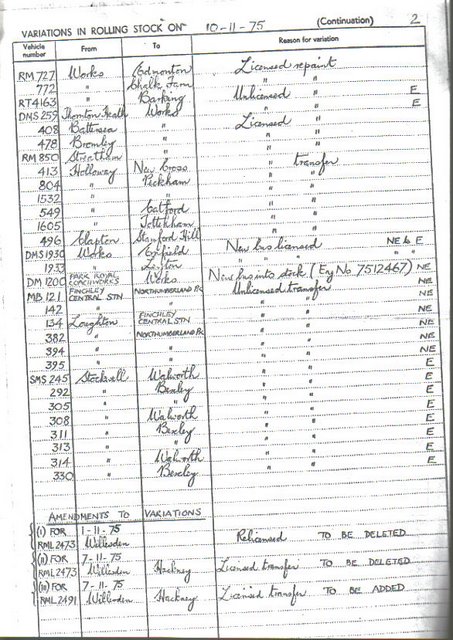 VARIATIONS IN ROLLING STOCK ON 10-11-75 (Continuation) 2
Vehicle number From To Reason for variation
RM 727 Works Edmonton Licensed repaint
772 " Chalk Farm " "
RT4163 " Barking Unlicensed " E
DMS 259 Thornton Heath Works " " E
408 Battersea " Licensed "
478 Bromley " " "
RM 850 Streatham " " transfer
413 Holloway New Cross " "
804 " Peckham " "
1532 " " " "
549 " Catford " "
1605 " Tottenham " "
496 Clapton Stamford Hill " "
DMS 1930 Works Enfield New bus licensed NE to E
1933 " " "
DM 1200 PARK ROYAL COACHWORKS Works New bus into stock (Eng No 7512467) NE
MB 121 FINCHLEY CENTRAL STN NORTHUMBERLAND PK Unlicensed transfer NE
142 " " " " NE
134 Loughton FINCHLEY CENTRAL STN " " NE
382 " NORTHUMBERLAND PK " " NE
394 " " " " NE
395 " " " " NE
SMS 245 Stockwell Walworth " " E
292 " Bexley " " E
305 " " " " E
308 " Walworth " " E
311 " Bexley " " E
313 " " " " E
314 " Walworth " " E
330 " Bexley " " E
AMENDMENTS TO VARIATIONS
(I) FOR 1-11-75
RML 2473 Willesden Relicensed TO BE DELETED
(II) FOR 7-11-75
RML 2473 Willesden Hackney Licensed transfer TO BE DELETED
(III) FOR 7-11-75
RML 2491 Willesden Hackney Licensed transfer TO BE ADDED